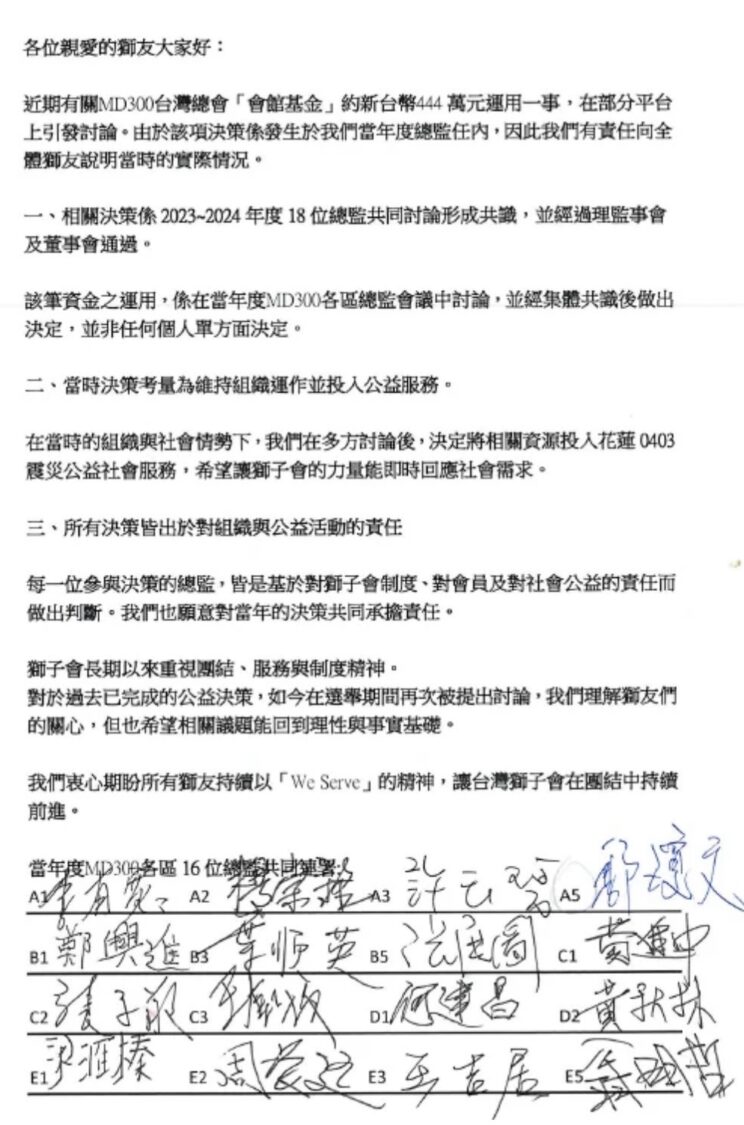 各位親愛的獅友大家好：
近期有關MD300台灣總會「會館基金」約新台幣444 萬元運用一事，在部分平台
上引發討論。由於該項決策係發生於我們當年度總監任內，因此我們有責任向全
體獅友說明當時的實際情況。
一、相關決策係 2023~2024 年度 18 位總監共同討論形成共識，並經過理監事會
及董事會通過。
該筆資金之運用，係在當年度MD300各區總監會議中討論，並經集體共識後做出
決定，並非任何個人單方面決定。
二、當時決策考量為維持組織運作並投入公益服務。
在當時的組織與社會情勢下，我們在多方討論後，決定將相關資源投入花蓮 0403
震災公益社會服務，希望讓獅子會的力量能即時回應社會需求。
三、所有決策皆出於對組織與公益活動的責任
每一位參與決策的總監，皆是基於對獅子會制度、對會員及對社會公益的責任而
做出判斷。我們也願意對當年的決策共同承擔責任。
獅子會長期以來重視團結、服務與制度精神。
對於過去已完成的公益決策，如今在選舉期間再次被提出討論，我們理解獅友們
的關心，但也希望相關議題能回到理性與事實基礎。
我們衷心期盼所有獅友持續以「We Serve」的精神，讓台灣獅子會在團結中持續
前進。
當年度MD300各區 16 位總監共同連署:
A1 A2 A3 許 A5 鄭
B1 鄭興進 B3 葉順英 B5 C1 黃
C2 C3 D1 何建昌 D2 黃秋林
E1 E2 周 E3 王吉居 E5